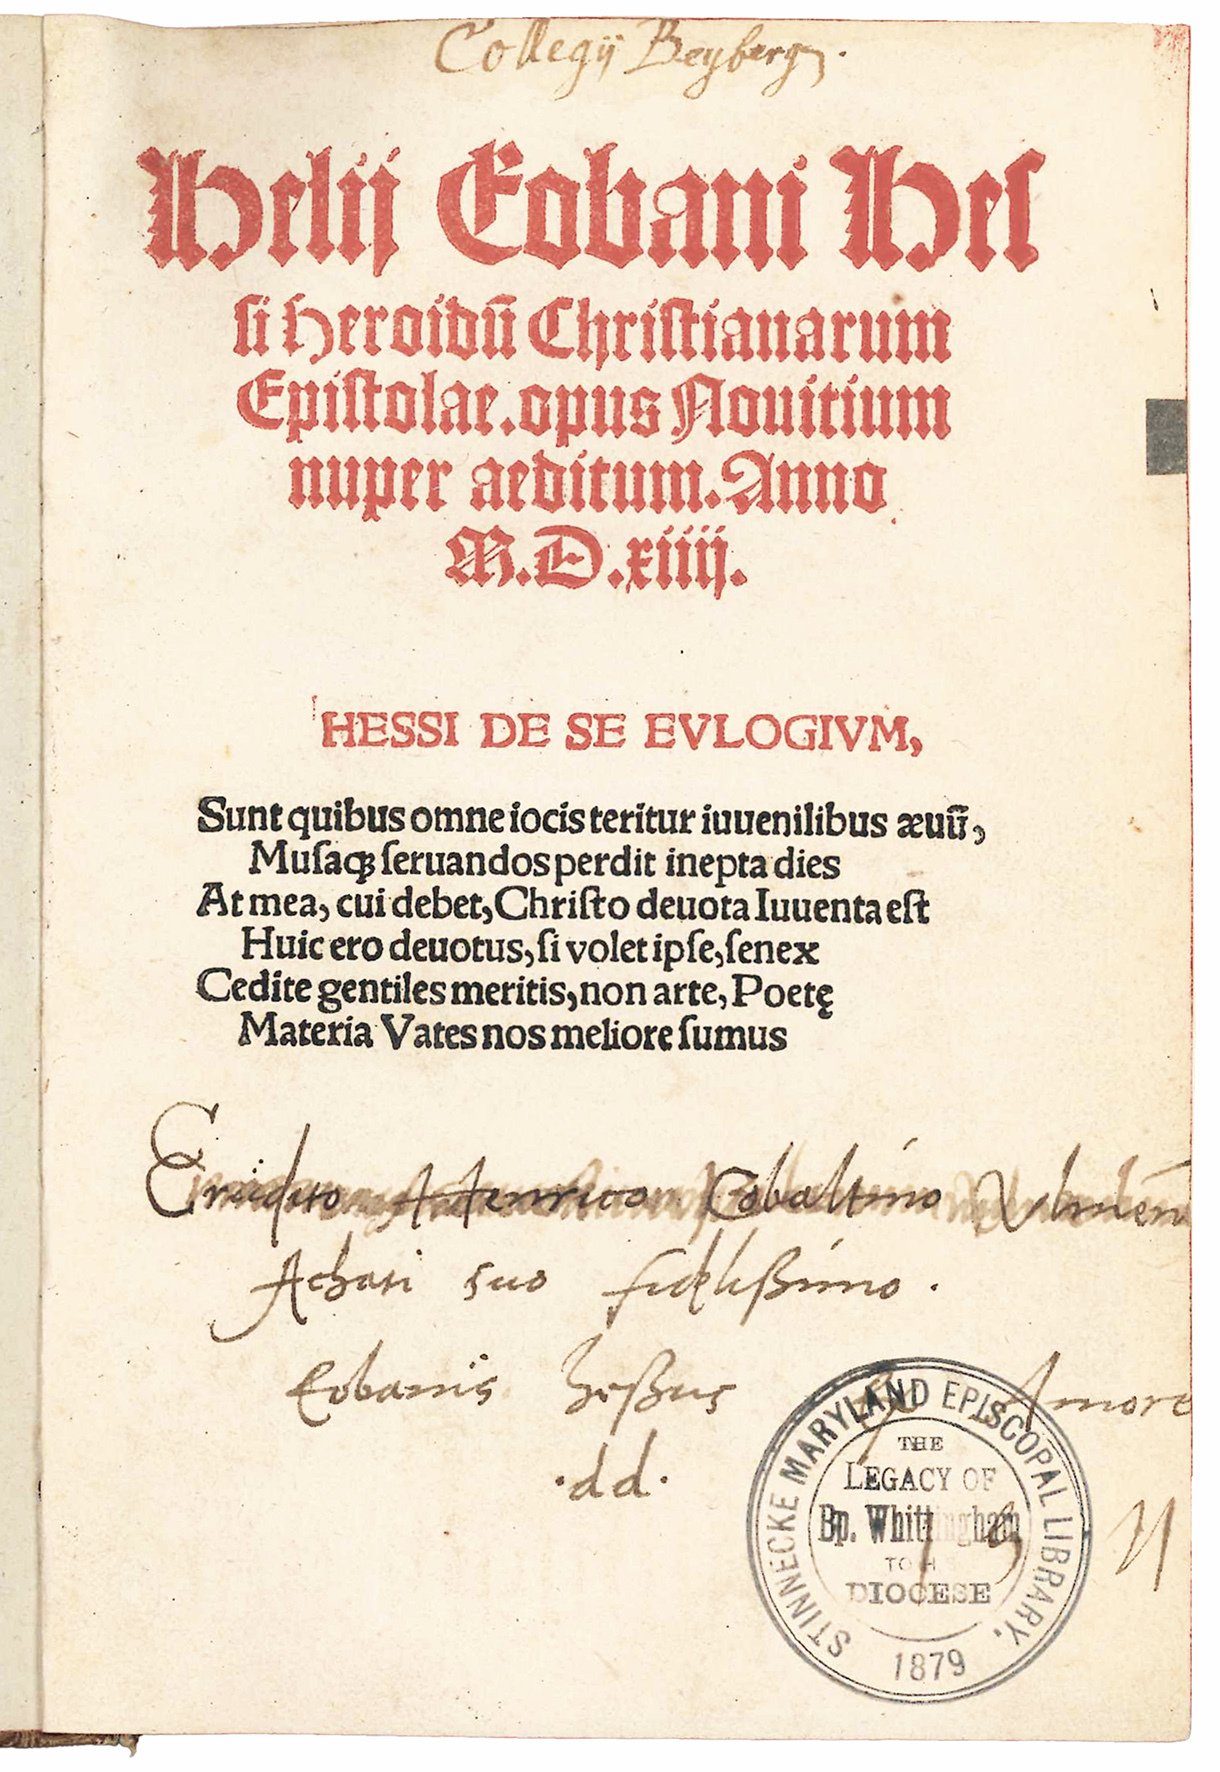 Collegij Beyberg.
Helij Eobani Heſ
ſi Heroidū Chriſtianarum
Epiſtolae. opus Nouitium
nuper aeditum. Anno
M.D.xiiij.
HESSI DE SE EVLOGIVM,
Sunt quibus omne iocis teritur iuuenilibus æuū,
Muſaqꝫ ſeruandos perdit inepta dies
At mea, cui debet, Chriſto deuota Iuuenta eſt
Huic ero deuotus, ſi volet ipſe, ſenex
Cedite gentiles meritis, non arte, Poetę
Materia Vates nos meliore ſumus
Erudito Henrico Cobaltino
Achati suo fidelißimo.
Eobanus heßus Amore
.dd.
STINNECKE MARYLAND EPISCOPAL LIBRARY.
THE
LEGACY OF
Bp. Whittingham
TO
DIOCESE
1879